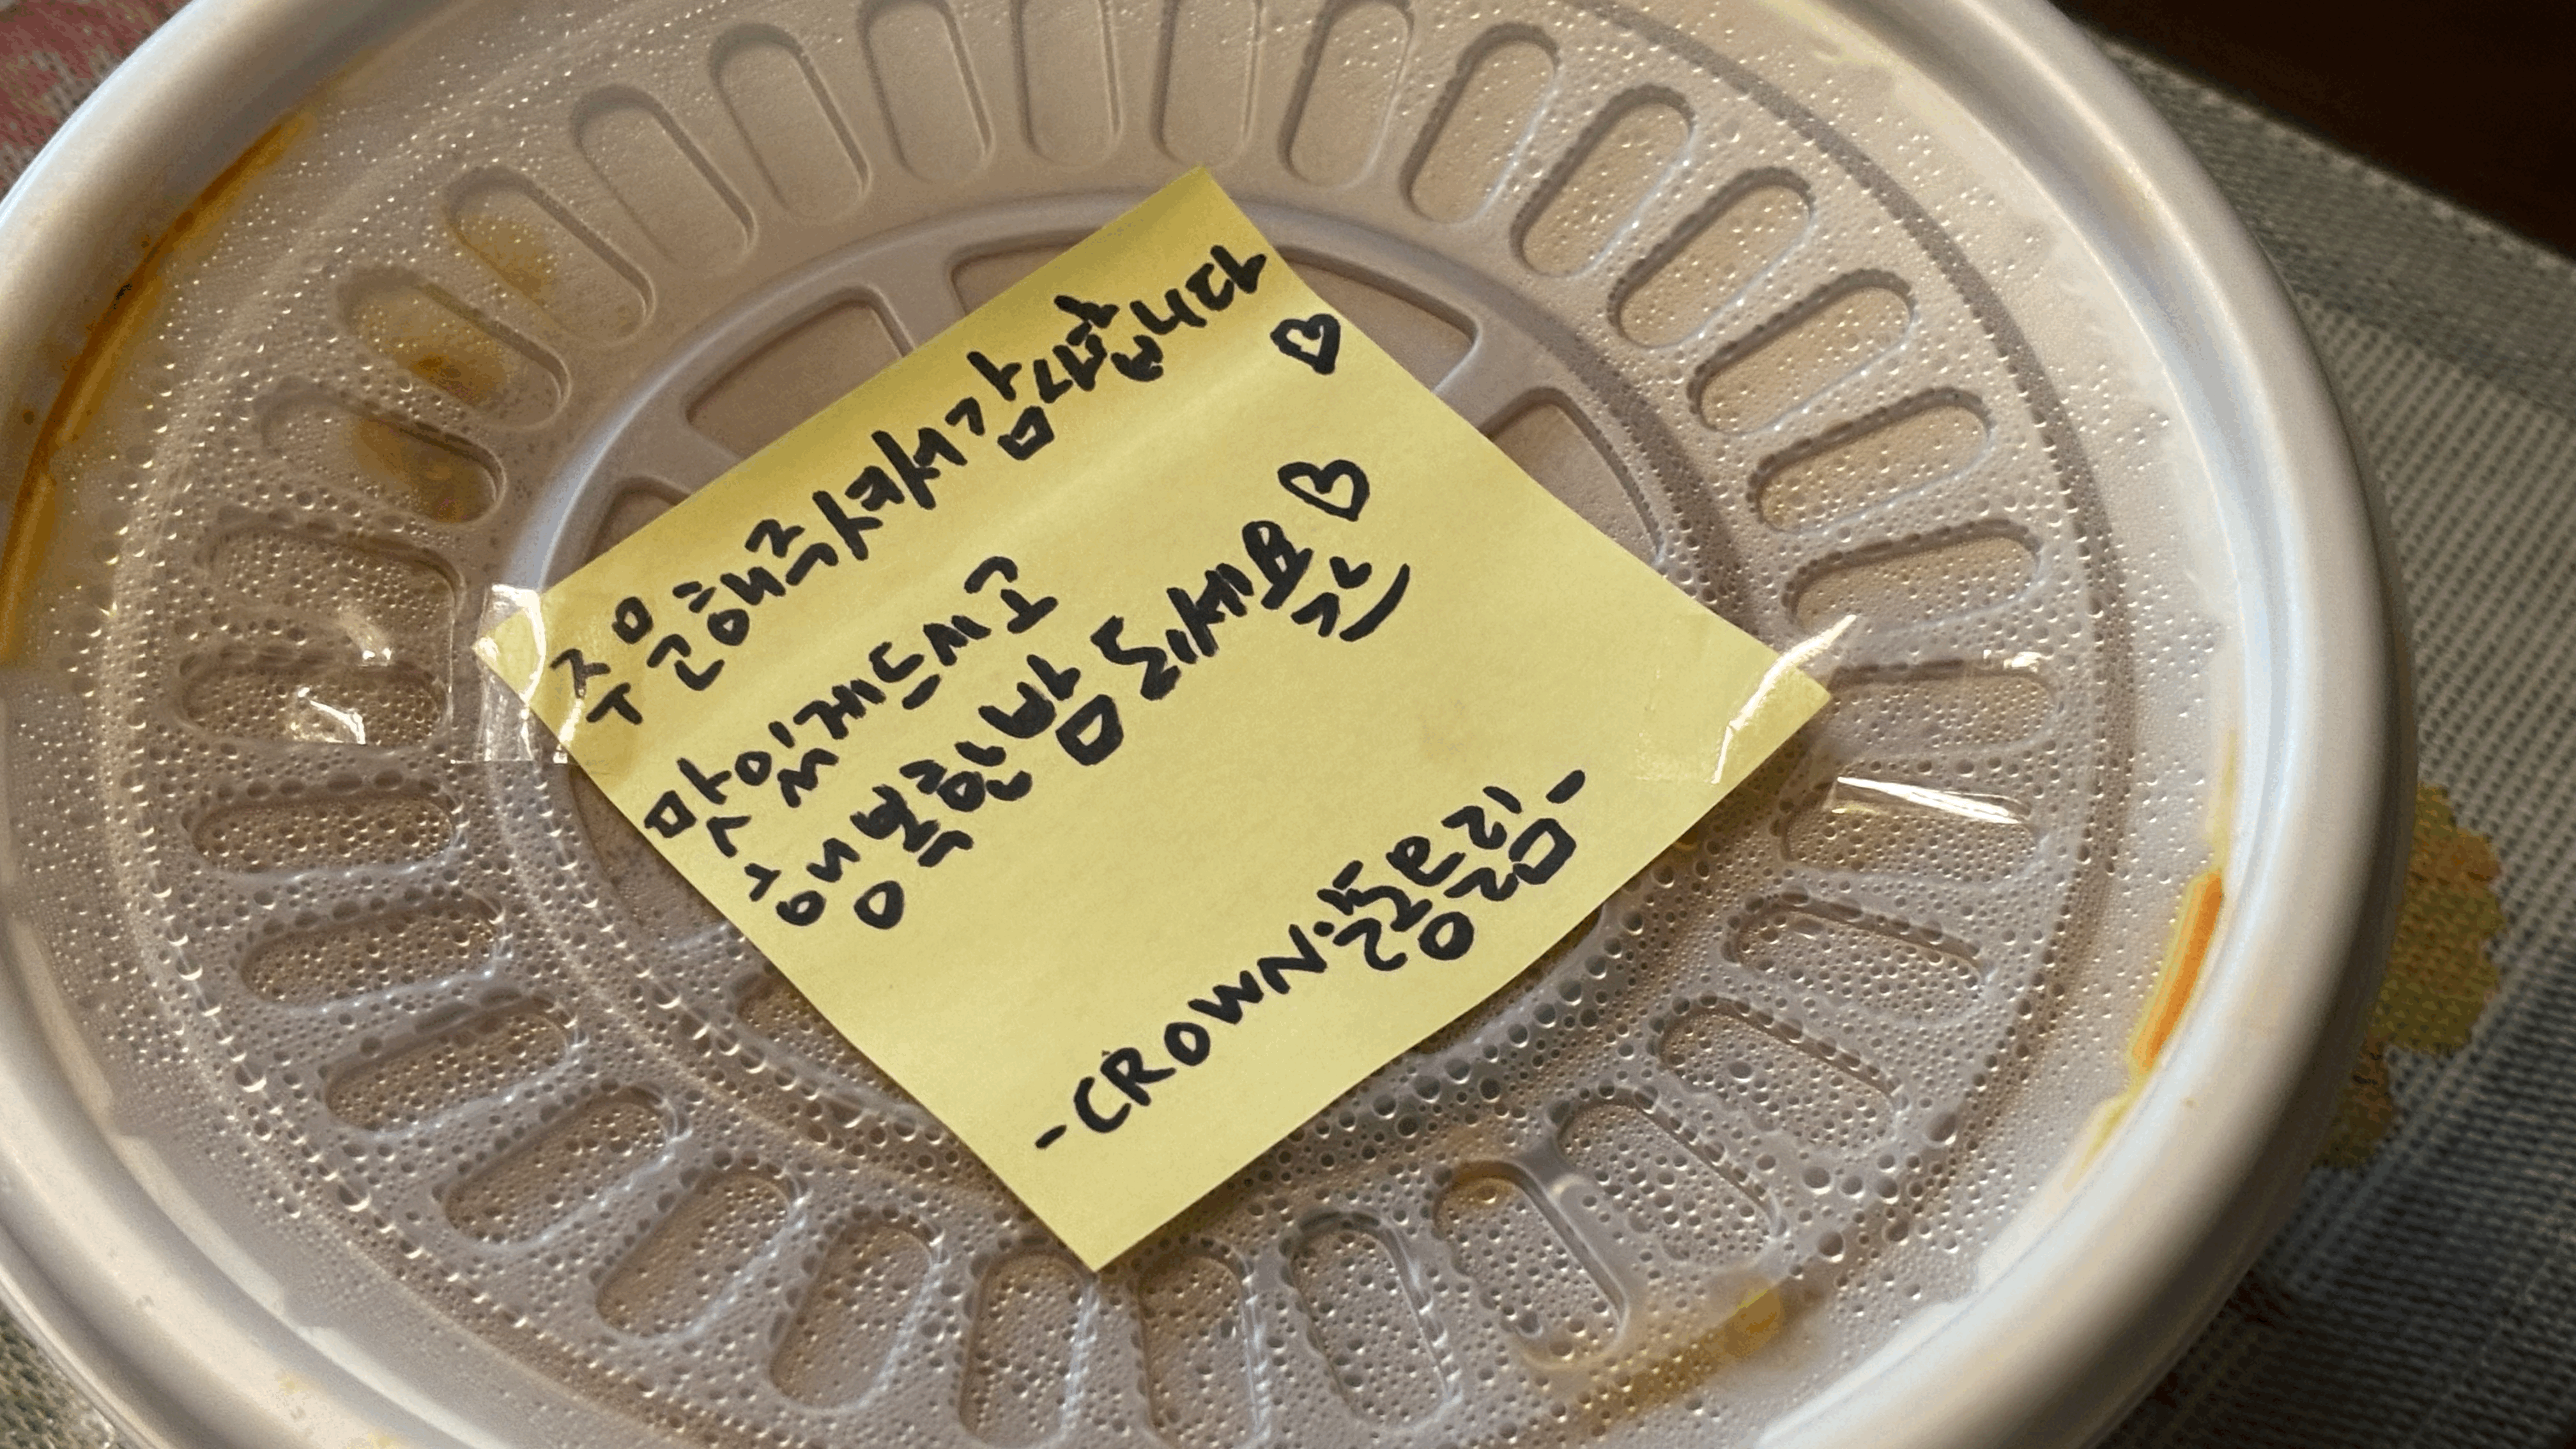 주문해주셔서감사합니다
♡
맛있게드시고
행복한밤 되세요♡
-CROWN